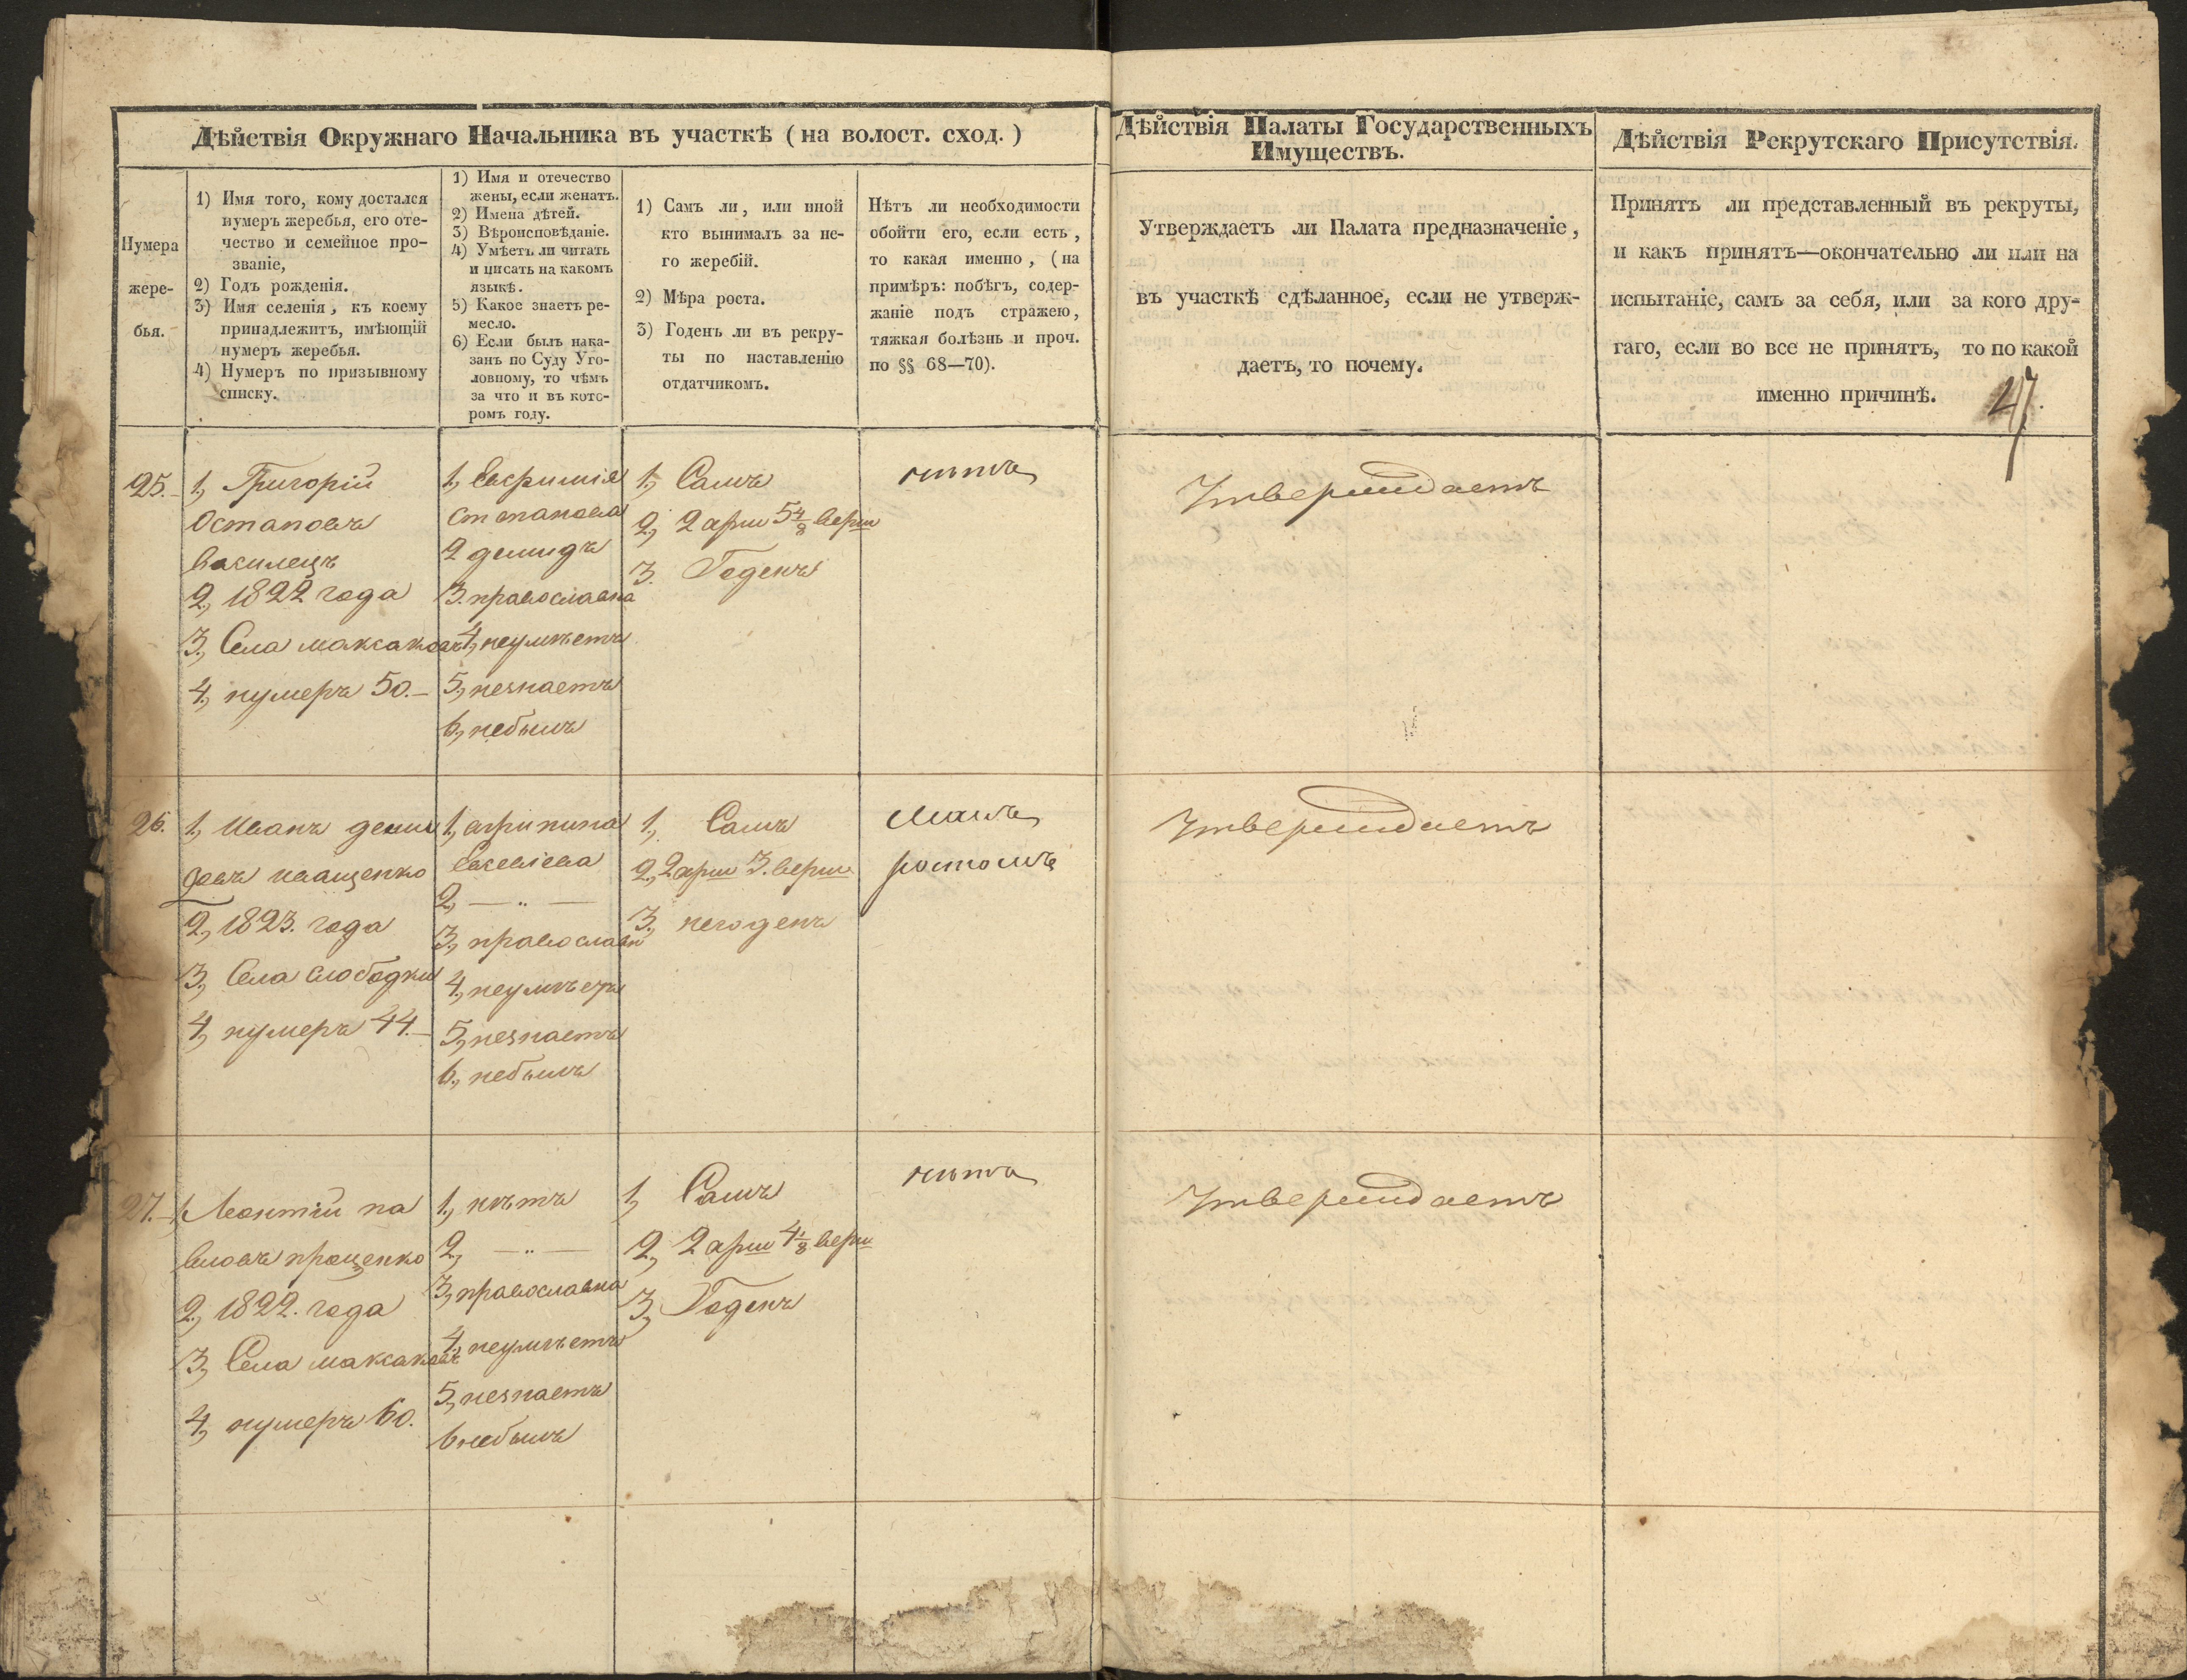 Дѣйствія Окружнаго Начальника въ участкѣ (на волост. сход.)
Нумера
жере-
бья.
1) Имя того, кому достался
нумеръ жеребья, его оте-
чество и семейное про-
званіе,
2) Годъ рожденія.
3) Имя селенія, къ коему
принадлежитъ, имѣющій
нумеръ жеребья.
4) Нумеръ по призывному
списку.
1) Имя и отечество
жены, если женатъ.
2) Имена дѣтей.
3) Вѣроисповѣданіе.
4) Умѣетъ ли читать
и писать на какомъ
языкѣ.
5) Какое знаетъ ре-
месло.
6) Если былъ нака-
занъ по Суду Уго-
ловному, то чѣмъ
за что и въ кото-
ромъ году.
1) Самъ ли, или иной
кто вынималъ за не-
го жеребій.
2) Мѣра роста.
3) Годенъ ли въ рекру-
ты по наставленію
отдатчикомъ.
Нѣтъ ли необходимости
обойти его, если есть,
то какая именно, (на
примѣръ: побѣгъ, содер-
жаніе подъ стражею,
тяжкая болѣзнь и проч.
по §§ 68—70).
Дѣйствія Палаты Государственныхъ
Имуществъ.
Утверждаетъ ли Палата предназначеніе,
въ участкѣ сдѣланное, если не утверж-
даетъ, то почему.
Дѣйствія Рекрутскаго Присутствія.
Принятъ ли представленный въ рекруты,
и какъ принятъ—окончательно ли или на
испытаніе, самъ за себя, или за кого дру-
гаго, если во все не принятъ, то по какой
именно причинѣ.
47.
25.
1, Григорій
Остаповъ
василецъ
2, 1822 года
3, Села максаковъ
4, нумеръ 50.
1, Евфимія
степанова
2 демидъ
3. православна
4, неумѣетъ
5, незнаетъ
6, небылъ
1, Самъ
2, 2 арш 5 4/8 верш
3. Годенъ
нѣтъ
Утверждаетъ
26.
1, Иванъ деми
довъ иващенко
2, 1823. года
3, Села слободки
4, нумеръ 44.
1, агрипина
Евсевіева
2, — „ —
3, православн
4, неумѣетъ
5, незнаетъ
6, небылъ
1, Самъ
2, 2 арш 3. верш
3, негоденъ
Малъ
ростомъ
Утверждаетъ
27.
1, Леонтій па
вловъ проценко
2, 1822. года
3, Села максаковъ
4, нумеръ 60.
1, нѣтъ
2, — „ —
3, православна
4, неумѣетъ
5, незнаетъ
6 небылъ
1, Самъ
2, 2 арш 4 1/8 верш
3, Годенъ
нѣтъ
Утверждаетъ